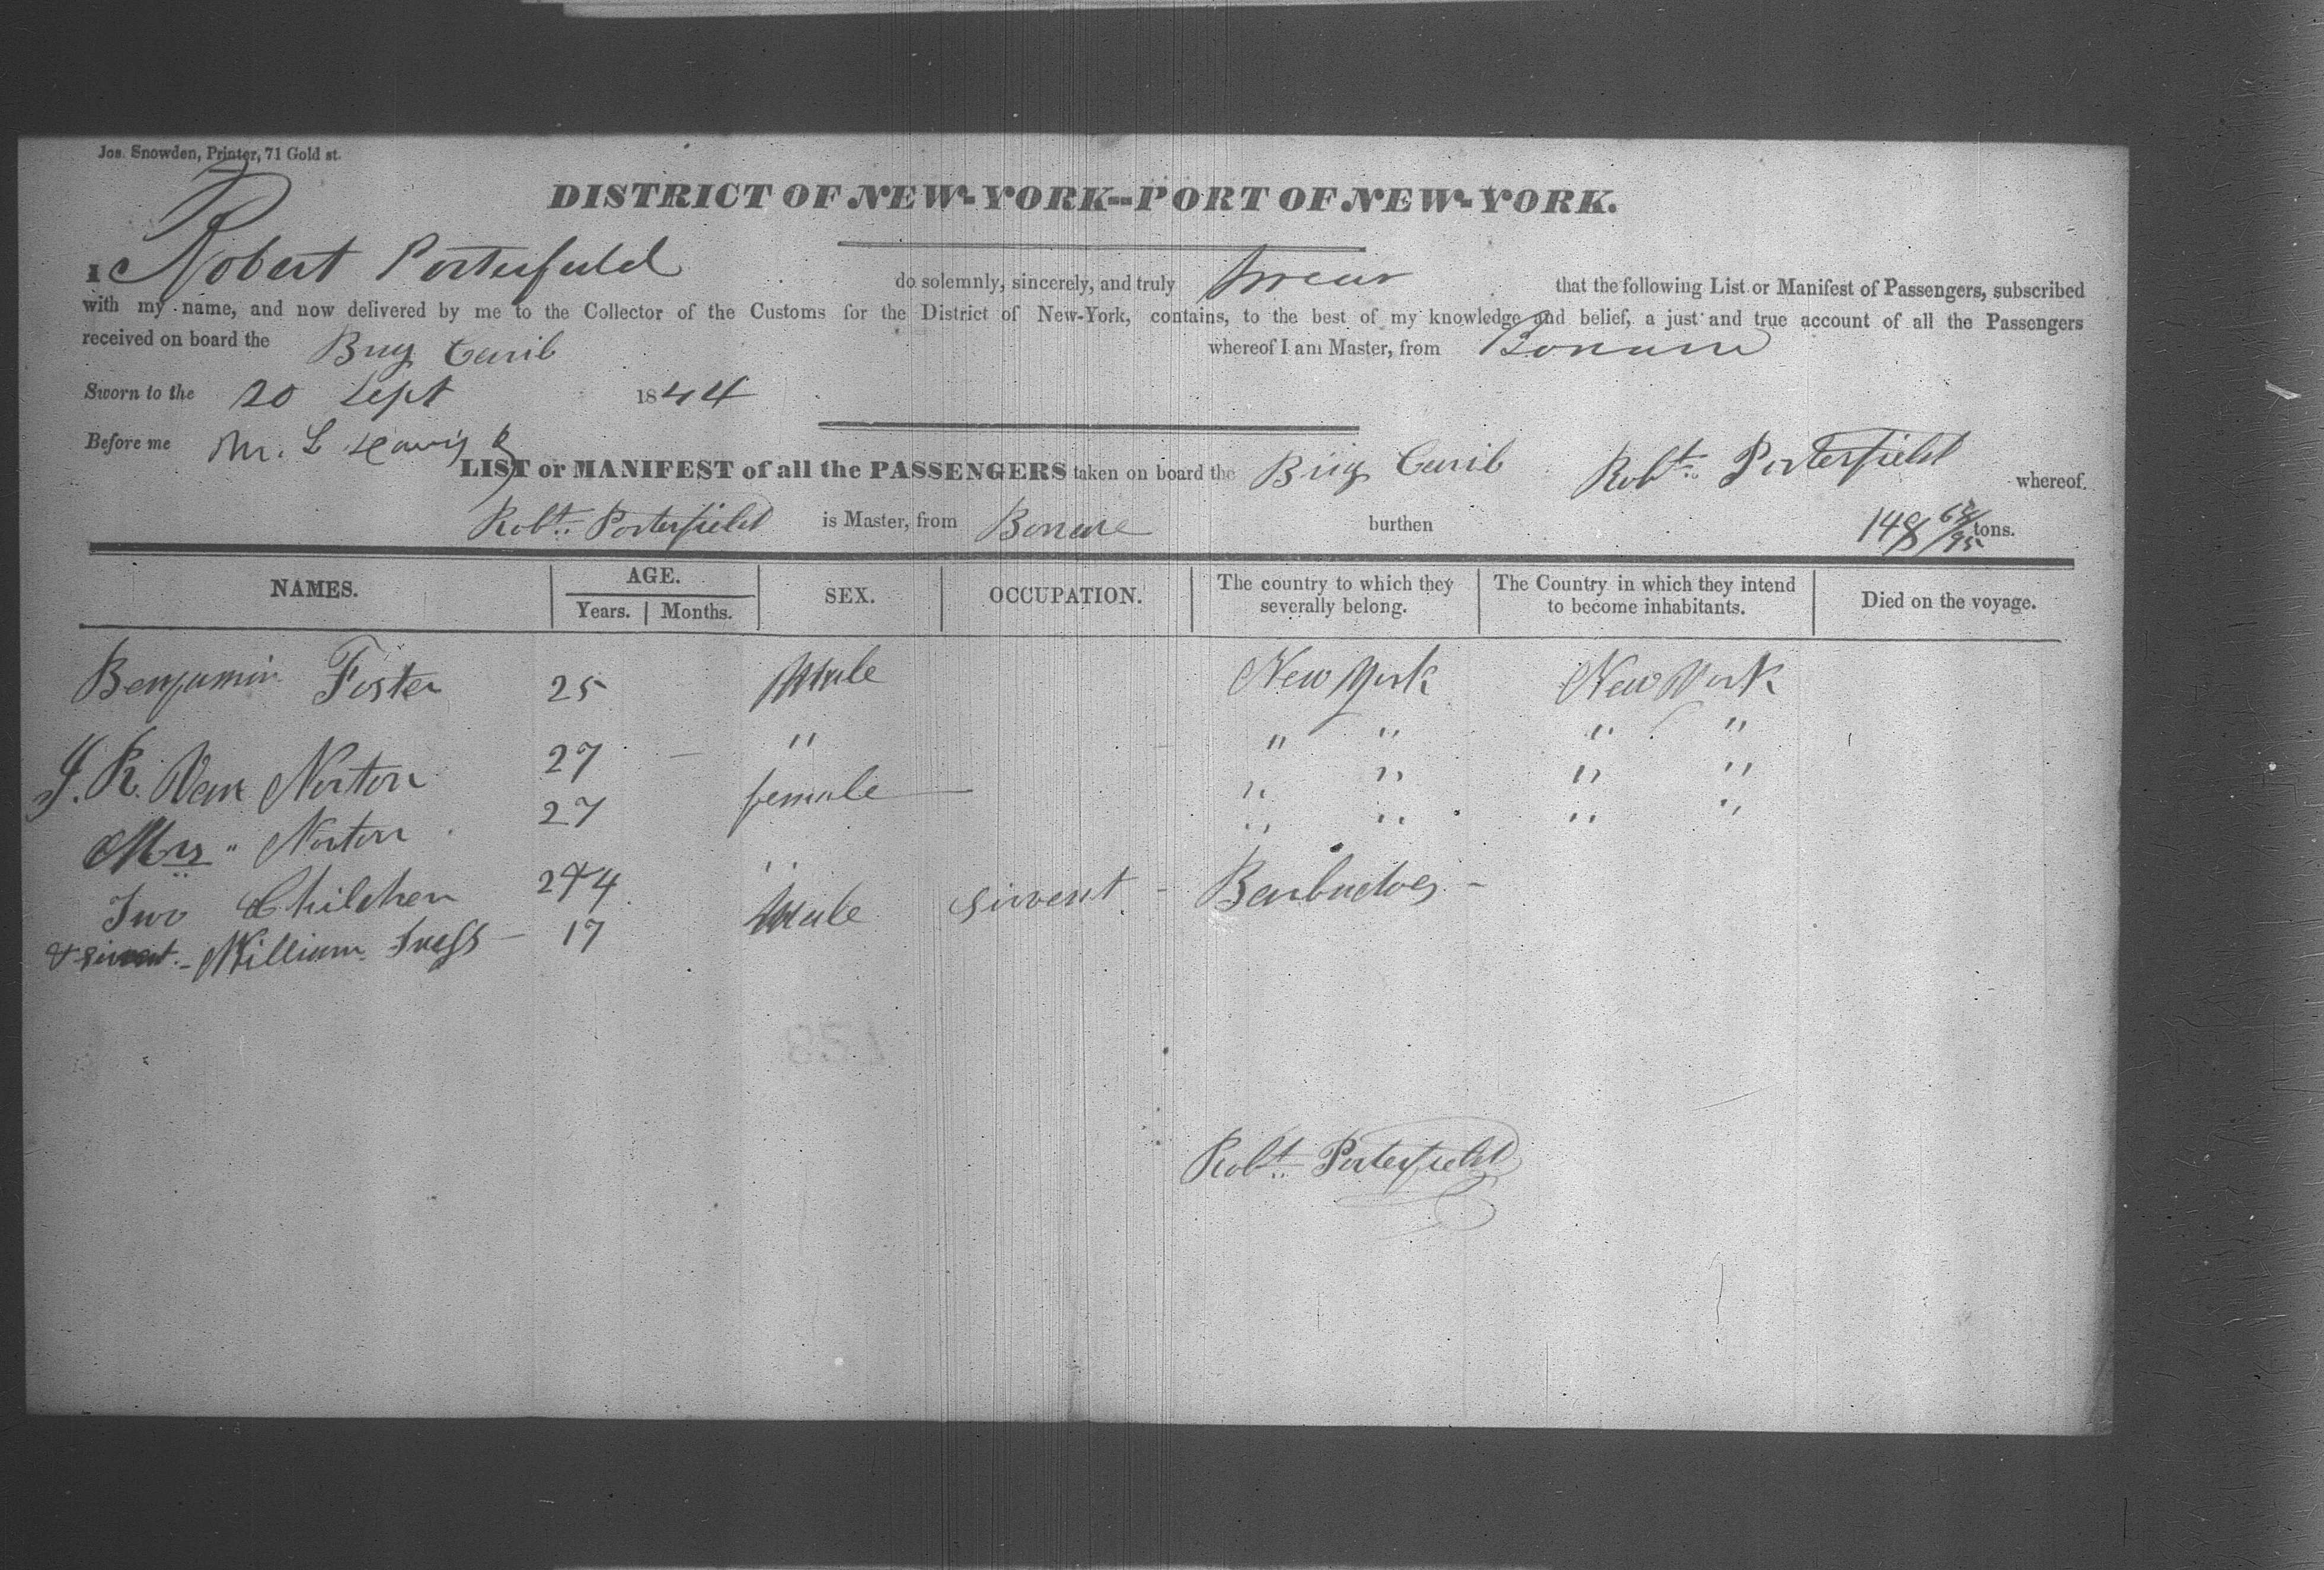 Jos. Snowden, Printer, 71 Gold st.
DISTRICT OF NEW-YORK--PORT OF NEW-YORK.
I Robert Porterfield do solemnly, sincerely, and truly swear that the following List or Manifest of Passengers, subscribed
with my name, and now delivered by me to the Collector of the Customs for the District of New-York, contains, to the best of my knowledge and belief, a just and true account of all the Passengers
received on board the Brig Carib whereof I am Master, from Bonaire
Sworn to the 20 Sept 1844
Before me M. L
LIST or MANIFEST of all the PASSENGERS taken on board the Brig Carib Robt. Porterfield whereof
Robt. Porterfield is Master, from Bonaire burthen 148 tons.
NAMES. AGE. SEX. OCCUPATION. The country to which they severally belong. The Country in which they intend to become inhabitants. Died on the voyage.
Years. Months.
Benjamin Foster 25 Male New York New York
J. R. Van Norton 27 — " " " " "
Mrs " Norton 27 female " " " "
Two Children 2 & 4 " " " " " "
& servent - William 17 Male servent - Barbadoes -
Robt. Porterfield